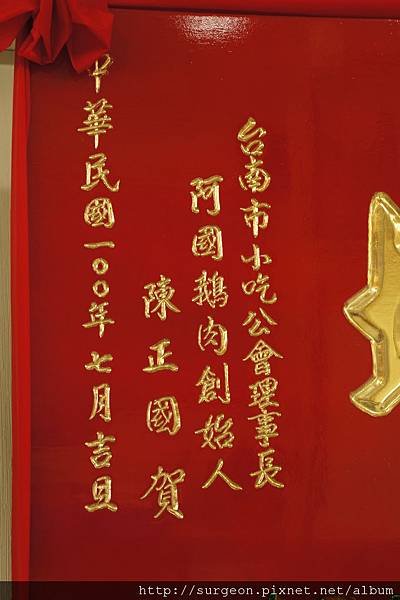 台南市小吃公會理事長
阿國鵝肉創始人
陳正國賀
中華民國一〇〇年七月吉旦
http://surgeon.pixnet.net/album